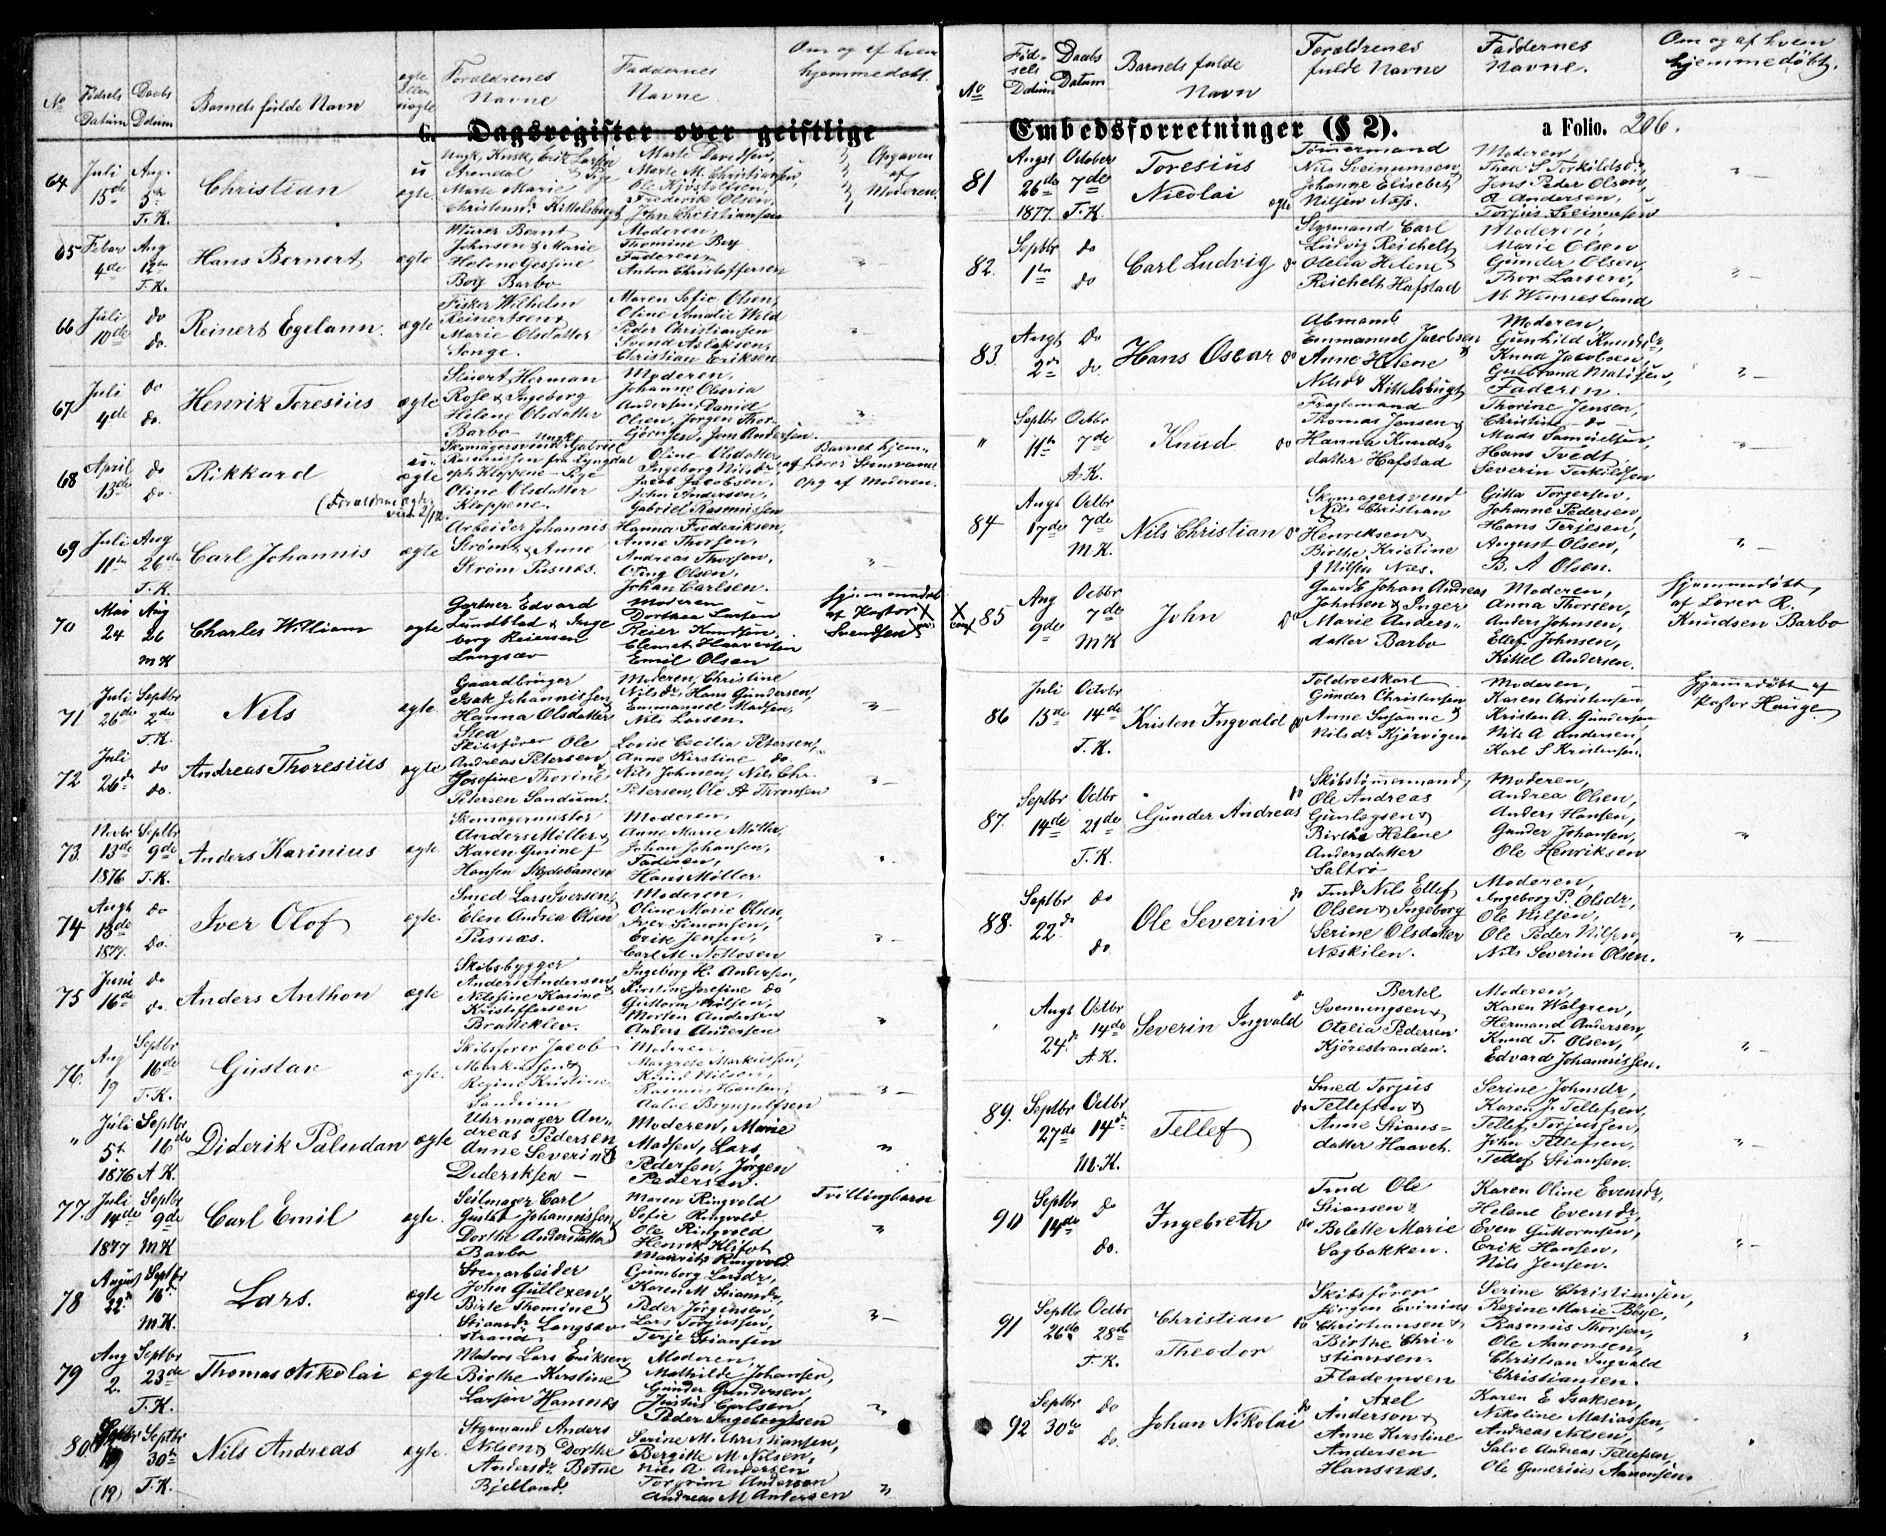 No Fødsels Datum Daabs Datum Barnets fulde Navn ægte eller uægte Forældrenes Navne Faddernes Navne Om og af hvem hjemmedøbt.
G. Dagsregister over geistlige
64 Juli 15de Aug. 5te T.K. Christian u ægte
Ungk. Kusk, Erik Larsen
Arendal & Pige
Marte Marie
Christensdr. Kittelsbugt
Marte Davidsen,
Marte M. Christiansen,
Ole Kjøstolsen,
Frederik Olsen,
John Christiansen
Opgaven
af
Moderen.
65 Febar 4de Aug 12te T.K. Hans Bernert ægte
Murer Bernt
Johnsen & Marie
Helene Gessine
Boy Barbo
Moderen,
Thomine Boy
Faderen,
Anton Christoffersen
66 Juli 10de do do. Reinert Egelann. ægte
Fisker Wilhelm
Reinertsen &
Marie Olsdatter
Songe.
Maren Sofie Olsen,
Oline Amalie Wold
Peder Christiansen
Svend Aslaksen,
Christian Eriksen
67 Juli 4de do do. Henrik Toresius ægte
Stuert Herman
Rose & Ingeborg
Helene Olsdatter
Barbo
Moderen,
Johanne Olevia
Andersen, Daniel
Olsen, Jørgen Thor-
Jens Andersen.
68 April 13de do do. Rikkard u- ægte
(Forældrene ægte-
Skomagersvend Gabriel
Rasmussen fra Lyngdal
Kloppene - Pige
Oline Olsdatter
Kloppene.
Oline Olsdatter
Ingeborg Nilsdr
Jacob Jacobsen,
John Andersen,
Gabriel Rasmussen
Barnet hjem-
af Lærer
Opg af Moderen.
69 Juli 11te Aug 26de T.K. Carl Johannis ægte
Arbeider Johannis
Strøm & Anne
Strøm Pusnæs.
Hanna Frederiksen,
Anne Thorsen,
Andreas Thorsen,
Oting Olsen,
Johan Carlsen.
70 Mai 24 Aug 26 M K Charles William ægte
Gartner Edvard
Lundblad & Inge
borg Reiersen
Langsæv
Moderen
Dorthea Larsen
Reier Knudsen,
Clemet Haaversen
Emil Olsen
Hjemmedøbt
af Pastor
Svendsen X
71 Juli 26de Septbr 2den T.K. Nils ægte.
Gaardbruger
Isak Johannissen
Hanna Olsdatter
Sted
Moderen, Christine
Nilsdr, Hans Gundersen,
Emmanuel Madsen,
Nils Larsen.
72 Juli 26de do do. Andreas Thoresius ægte
Skibsfører Ole
Andreas Petersen &
Josefine Thorine
Petersen Sandum.
Lovise Cecilia Petersen,
Anne Kirstine do
Nils Johnsen, Nils Chr.
Petersen, Ole A Thomsen
73. Novbr 13de 1876 Septbr 9de T.K. Anders Karinius ægte
Skomagermester
Anders Møller &
Karen Gurine f
Hansen Skydebanen
Moderen,
Anne Marie Møller,
Johan Johansen,
Faderen,
Hans Møller
74 Augt 13de 1877. do do. Iver Olof ægte.
Smed Lars Iversen &
Elen Andrea Olsen
Pusnæs.
Moderen,
Oline Marie Olsen,
Iver Simonsen,
Erik Jensen,
Carl M. Nottosen
75 Juni 16de do do. Anders Anthon ægte
Skibsbygger
Anders Andersen &
Nilsine Karine
Kristoffersen
Bratteklev.
Ingeborg H. Andersen,
Kirstine Josefine do
Guttorm Nilsen,
Morten Andersen
Anders Andersen
76. Aug 19 Septbr 16de T.K. Gustav ægte.
Skibsfører Jacob
Markussen &
Regine Kristine
Sandum
Moderen
Margrete Markussen,
Knud Nilsen,
Rasmus Hansen,
Aalve Brynjulfsen
" Juli 5te 1876 Septbr 16de A K. Diderik Paludan ægte
Uhrmager An-
dreas Pedersen
Anne Severine
Dideriksen -
Moderen, Marie
Madsen, Lars
Pedersen, Jørgen
Pedersen.
77. Juli 14de 1877 Septbr 9de M K Carl Emil ægte.
Seilmager Carl
Gustav Johannissen
Dorthe Andersdatter
Barbo
Maren Ringvold
Sofie Ringvold
Ole Ringvold
Henrik Klifot
Mauritz Ringvold.
Tvillingbarn
78 August 22de Septbr 16de M.K. Lars. ægte
Stenarbeider
John Gullexen &
Birte Thomine
Stiansdr Langsæv
strand
Gumborg Larsdr,
Karen M. Stiansdr,
Peder Jørgensen,
Lars Torjussen,
Terje Stiansen
79 Aug 2. Septbr 23de T.K. Thomas Nikolai ægte
Matros Lars Eriksen
Birthe Kirstine
Larsen Hansnæs
Moderen,
Mathilde Johansen,
Gunder Gundersen
Justus Carlsen
Peder Ingebretsen
80. 19 (19) Septbr 30te T.K. Nils Andreas ægte.
Styrmand Anders
Nilsen & Dorthe
Andersdr. Betsie
Bjelland.
Serine M. Christiansen,
Bergitte M. Nilsen,
Nils A. Andersen
Torgrim Andersen
Andreas M Andersen
No Fødselsdatum Daabs Datum Barnets fulde Navn Forældrenes fulde Navne Faddernes Navne. Om og af hvem hjemmedøbt.
Embedsforretninger (§ 2). a Folio. 206.
81 Augst 26de 1877 October 7de T.K. Toresius Nicolai ægte
Tømermand
Nils Sveinumsen
Johanne Elisebet
Nilsen Næs.
Moderen,
Thea S Torkildsdr,
Jens Peder Olsen,
O Andersen,
Torjus Sveinumsen
82. Septbr 1te do do Carl Ludvig do
Styrmand Carl
Ludvig Reichelt
Otelia Helene
Reichelt Hafstad
Moderen,
Marie Olsen
Gunder Olsen,
Thor Larsen,
M. Wennesland
83. Augt 2de do do. Hans Oscar do
Emmanuel Jacobsen
Anne Helene
Nilsdr Kittelsbugt
Moderen,
Gunhild Knudsdr,
Knud Jacobsen,
Gulbrand Matisen,
Faderen.
" Septbr 11te Octbr 7de A.K. Knud do
Fragtemand
Thomas Jensen &
Hanna Knuds-
datter Hafstad
Thorine Jensen,
Christine do -
Mads Samuelsen,
Hans Tvedt,
Severin Terkildsen
84 Augt 17de Octbr 7de M K. Nils Christian do
Skomagersvend
Nils Christian
Henriksen &
Birthe Kristine
f Nilsen Næs.
Gitta Torgersen,
Johanne Pedersen,
Hans Terjesen,
August Olsen,
B. A Olsen.
X 85 Aug 9de Octbr 7de M K John do
Gaardb Johan Andreas
Johnsen & Inger
Marie Anders-
datter Barbo
Moderen,
Anna Thorsen,
Anders Johnsen,
Ellef Johnsen,
Kittel Andersen.
Hjemmedøbt
af Lærer R.
Knudsen Barbo
86 Juli 15de Octobr 14de T.K. Kristen Ingvald do
Toldroeskarl
Gunder Christensen
Anne Susanne &
Nilsdr Kjørvigen
Moderen,
Karen Christensen,
Kristen A. Gundersen
Nils A Andersen,
Karl S Kristensen.
Hjemmedøbt af
Pastor Hauge.
87. Septbr 14de Octbr 21de T.K. Gunder Andreas do
Skibstømermand
Ole Andreas
Gunleysen &
Birthe Helene
Andersdatter
Saltrø
Moderen,
Andrea Olsen,
Anders Hansen,
Gunder Johansen,
Ole Henriksen
88. Septbr 22de do do. Ole Severin do
Tmd Nils Ellef
Olsen & Ingeborg
Serine Olsdatter
Neskilen.
Moderen,
Ingeborg P. Olsdr,
Ole Nilsen,
Ole Peder Nilsen,
Nils Severin Olsen.
Augt 24de Octbr 14de A.K. Severin Ingvald do
Bertel
Svenningsen &
Otelia Pedersen
Kjørestranden.
Moderen,
Karen Walgren,
Hermand Andersen,
Knud T. Olsen,
Edvard Johannissen.
89. Septbr 27de Octbr 14de M.K. Tellef do
Smed Torjus
Tellefsen &
Anne Stians-
datter Haaveh.
Serine Johnsdr,
Karen J. Tellefsen,
Tellef Torjussen,
John Tellefsen,
Tellef Stiansen.
90 Septbr 14de do do. Ingebreth do
Tmd Ole
Stiansen &
Bolette Marie
Sagbakken.
Karen Oline Evensdr,
Helene Evensdr,
Even Guttormsen,
Erik Hansen,
Nils Jensen.
91 Septbr 26de Octbr 28de T.K. Christian Theodor do
Skibsfører
Jørgen Evinius
Christiansen &
Birthe Chri-
stiansen.
Flademoen
Serine Christiansen,
Regine Marie Bøye,
Rasmus Thorsen,
Ole Aanonsen,
Christian Ingvald
Christiansen.
92 Septbr 30te do do. Johan Nikolai do
Axel
Anderson &
Anne Kirstine
Andersen
Hansnæs.
Karen E Isaksen,
Nikoline Matiassen,
Andreas Nilsen,
Salve Andreas Tellefsen,
Ole Gunerius Aanonsen.